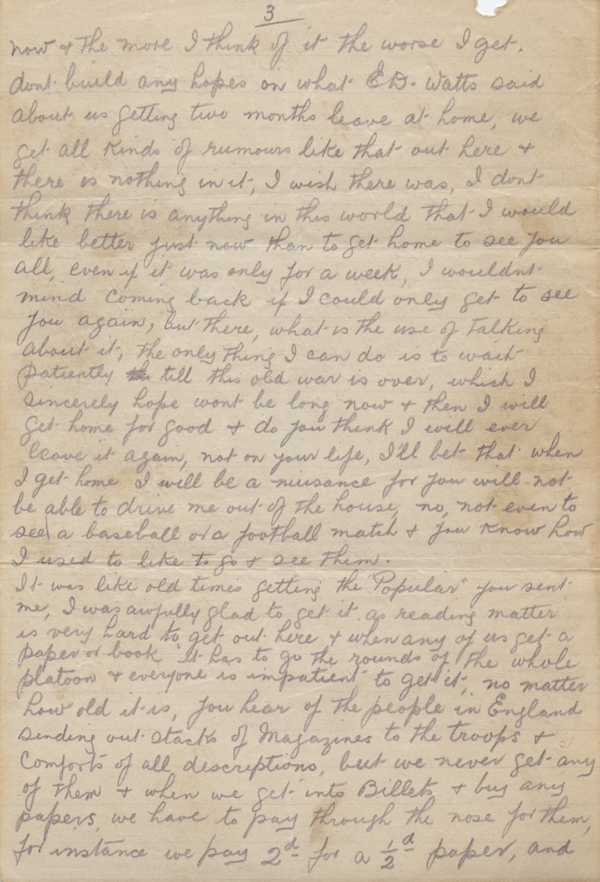 3
now & the more I think of it the worse I get,
dont build any hopes on what E.D. Watts said
about us getting two months leave at home, we
get all kinds of rumours like that out here &
there is nothing in it, I wish there was, I dont
think there is anything in this world that I would
like better just now than to get home to see you
all, even if it was only for a week, I wouldnt
mind coming back if I could only get to see
you again, but there, what is the use of talking
about it, the only thing I can do is to wait
patiently till this old war is over, which I
sincerely hope wont be long now & then I will
get home for good & do you think I will ever
leave it again, not on your life, I'll bet that when
I get home I will be a nuisance for you will not
be able to drive me out of the house, no, not even to
see a baseball or a football match & you know how
I used to like to go & see them.
It was like old times getting the "Popular" you sent
me, I was awfully glad to get it as reading matter
is very hard to get out here & when any of us get a
paper or book it has to go the rounds of the whole
platoon & everyone is impatient to get it, no matter
how old it is, you hear of the people in England
sending out stacks of Magazines to the troops &
Comforts of all descriptions, but we never get any
of them & when we get into Billets & buy any
papers, we have to pay through the nose for them,
for instance we pay 2d for a 1/2d paper, and